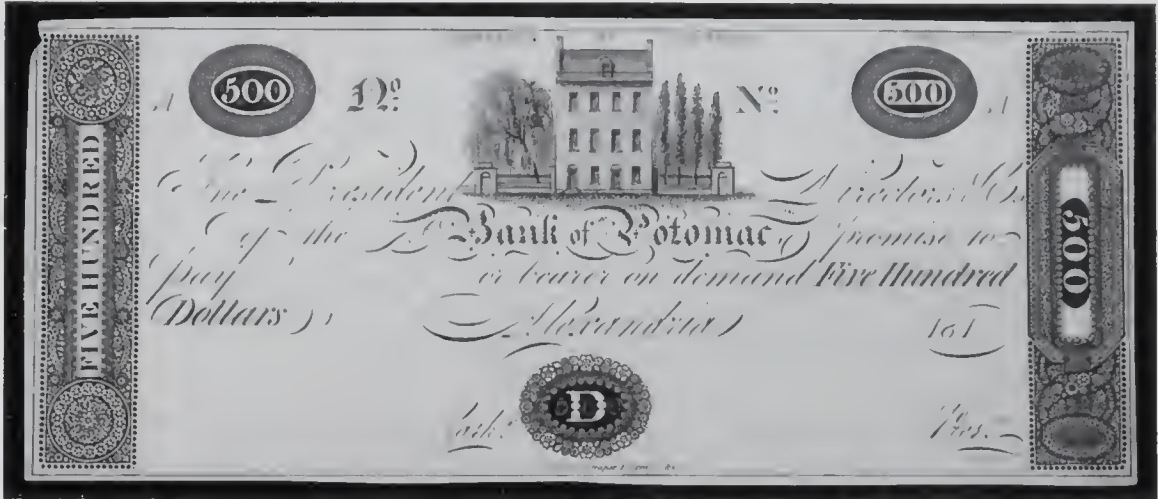 FIVE HUNDRED
A 500 No. No. 500 A
The President Directors & Co.
of the Bank of Potomac promise to
pay or bearer on demand Five Hundred
Dollars Alexandria 181
D
Cashr. Pres.
500